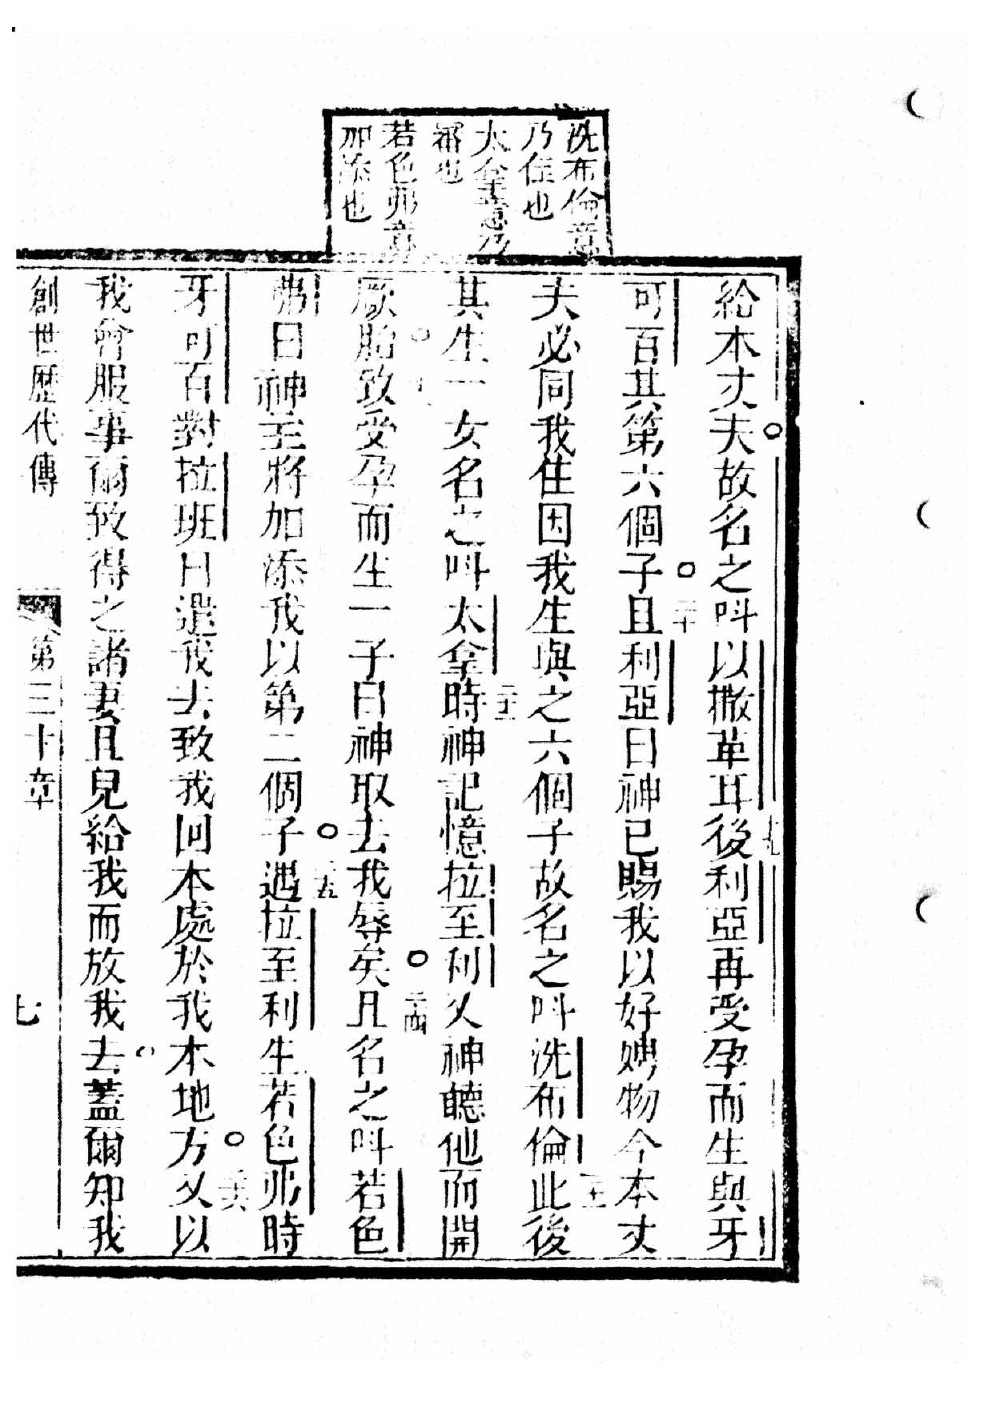 洗布倫意
乃住也
太拿意乃
審也
若色弗意
加添也
給本丈夫故名之呌以撒革耳後利亞再受孕而生與牙
十九
可百其第六個子且利亞曰神已賜我以好娉物今本丈
二十
夫必同我住因我生與之六個子故名之呌洗布倫此後
二十一
其生一女名之呌太拿時神記憶拉至利又神聽他而開
二十二
厥胎致受孕而生一子曰神取去我辱矣且名之呌若色
二十四
弗曰神至將加添我以第二個子遇拉至利生若色弗時
二十五
牙可百對拉班曰遣我去致我回本處於我本地方又以
二十六
我曾服事爾致得之諸妻且兒給我而放我去蓋爾知我
創世歷代傳
第三十章
七